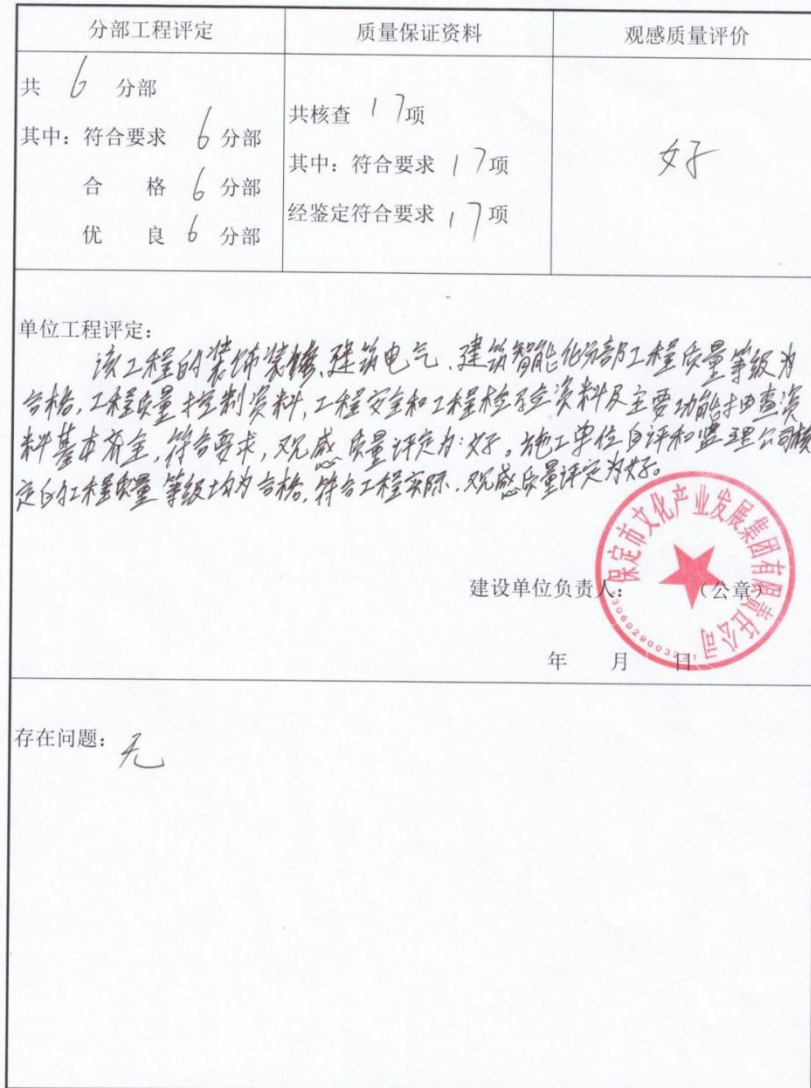 分部工程评定 质量保证资料 观感质量评价
共 6 分部
其中：符合要求 6 分部
合 格 6 分部
优 良 6 分部
共核查 17项
其中：符合要求 17项
经鉴定符合要求 17项
好
单位工程评定：
该工程的装饰装修、建筑电气、建筑智能化分部工程质量等级为
合格，工程质量控制资料，工程安全和工程检验资料及主要功能抽查资
料基本齐全，符合要求，观感质量评定为：好。施工单位自评和监理公司核
定的工程质量等级均为合格，符合工程实际，观感质量评定为好。
保定市文化产业发展集团有限责任公司
建设单位负责人： （公章）
年 月 日
存在问题：无